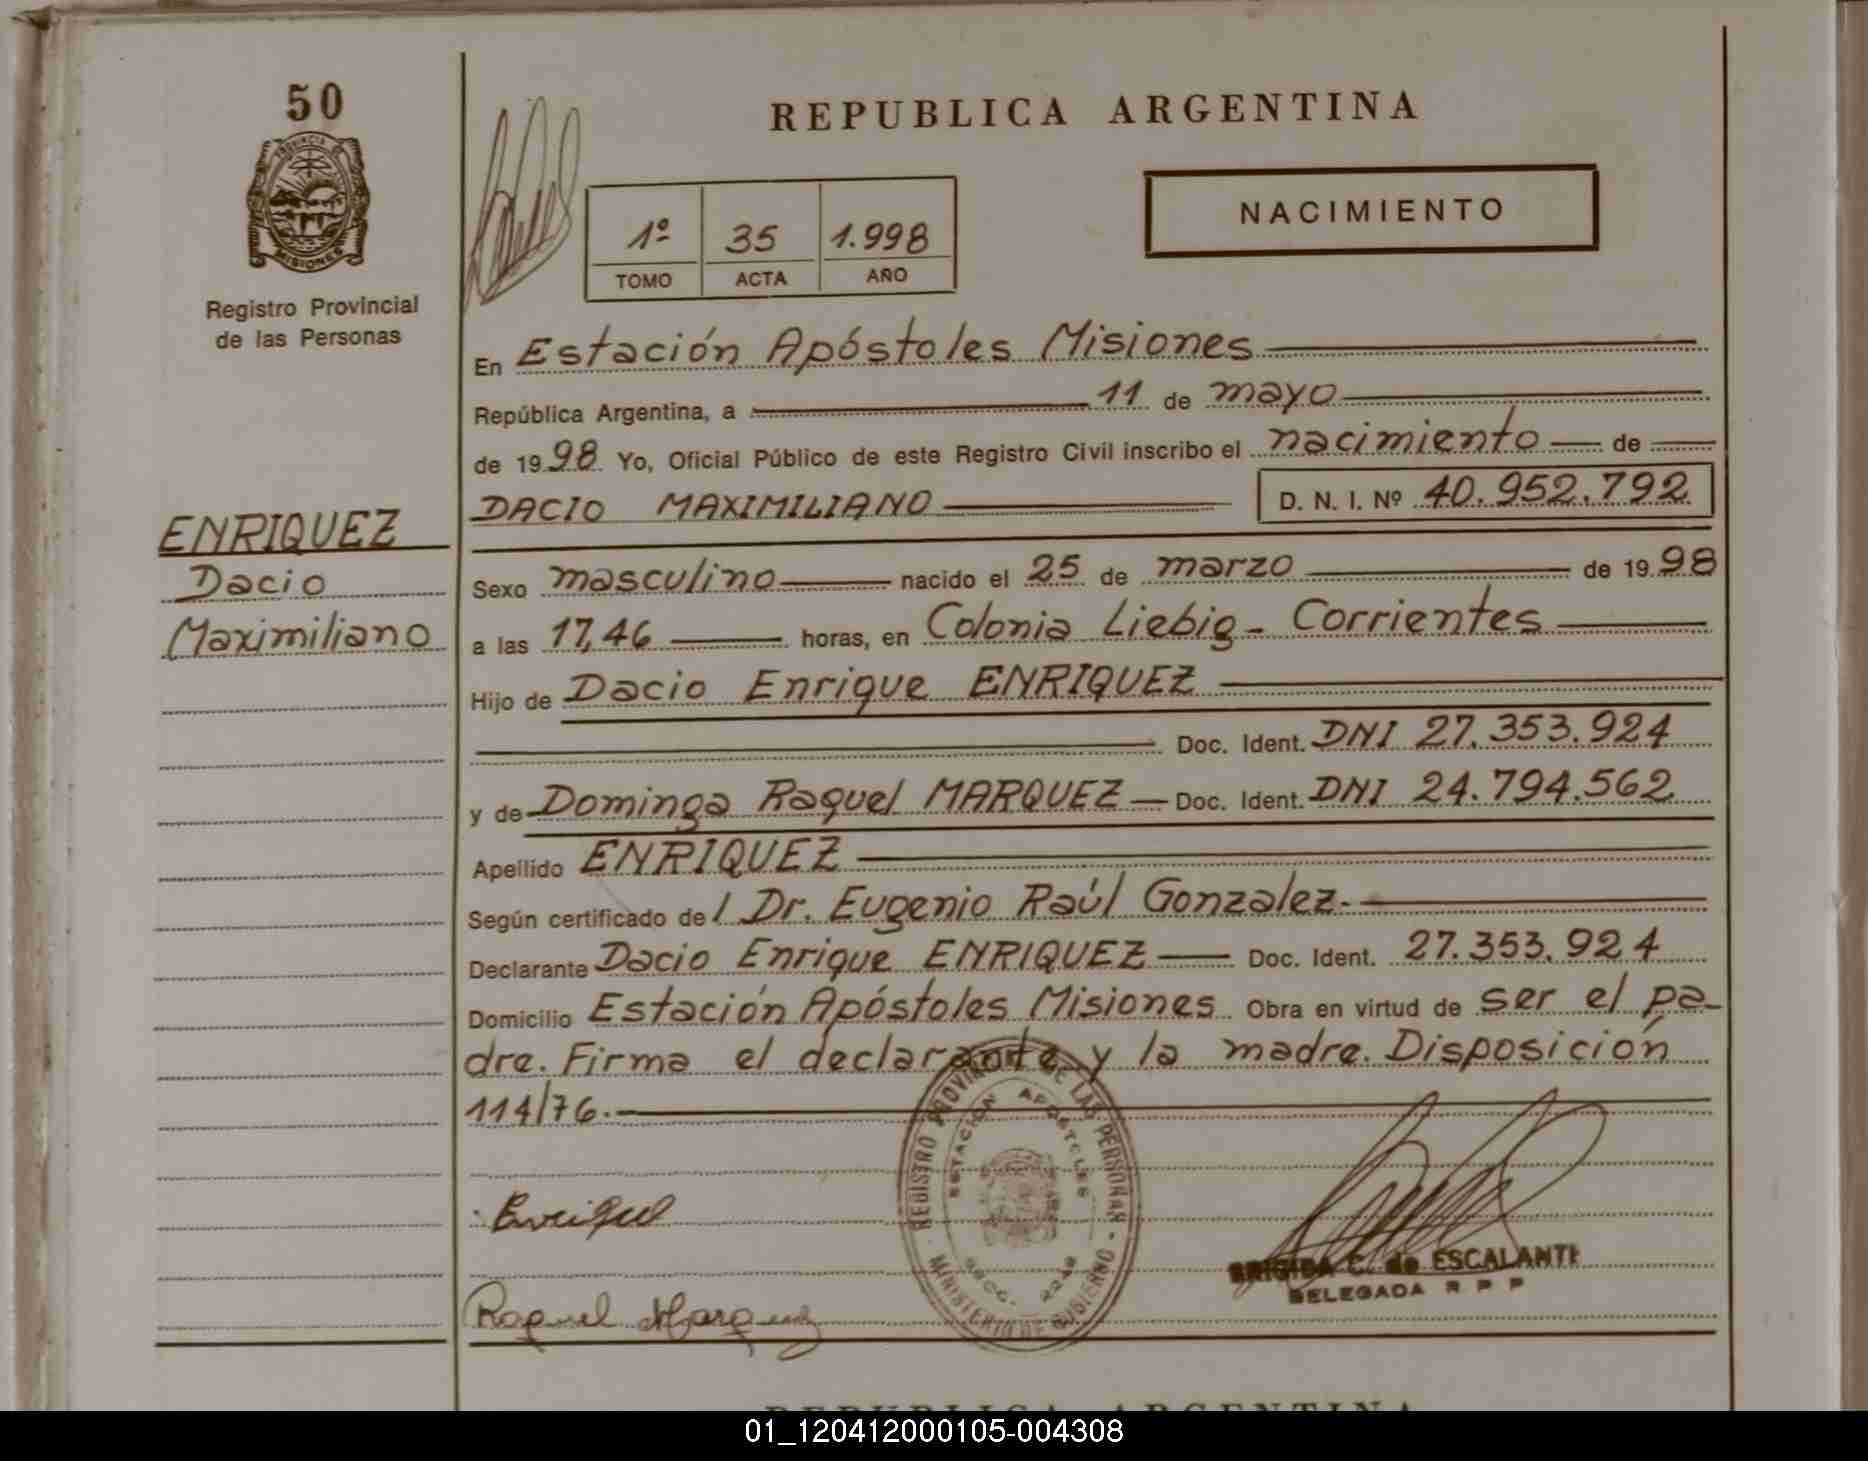 50
REPUBLICA ARGENTINA
PROVINCIA DE
MISIONES
Registro Provincial
de las Personas
1º 35 1.998
TOMO ACTA AÑO
NACIMIENTO
En Estación Apóstoles Misiones
República Argentina, a 11 de mayo
de 1998 Yo, Oficial Público de este Registro Civil inscribo el nacimiento de
DACIO MAXIMILIANO D. N. I. Nº 40.952.792
ENRIQUEZ
Dacio
Maximiliano
Sexo masculino nacido el 25 de marzo de 1998
a las 17,46 horas, en Colonia Liebig - Corrientes
Hijo de Dacio Enrique ENRIQUEZ
Doc. Ident. DNI 27.353.924
y de Dominga Raquel MARQUEZ Doc. Ident. DNI 24.794.562
Apellido ENRIQUEZ
Según certificado de / Dr. Eugenio Raúl Gonzalez.
Declarante Dacio Enrique ENRIQUEZ Doc. Ident. 27.353.924
Domicilio Estación Apóstoles Misiones Obra en virtud de ser el pa-
dre. Firma el declarante y la madre. Disposición
114/76.
REGISTRO PROVINCIAL DE LAS PERSONAS
ESTACION APOSTOLES
MINISTERIO DE GOBIERNO
Raquel Marquez
BRIGIDA C. de ESCALANTE
DELEGADA R P P
REPUBLICA ARGENTINA
01_120412000105-004308